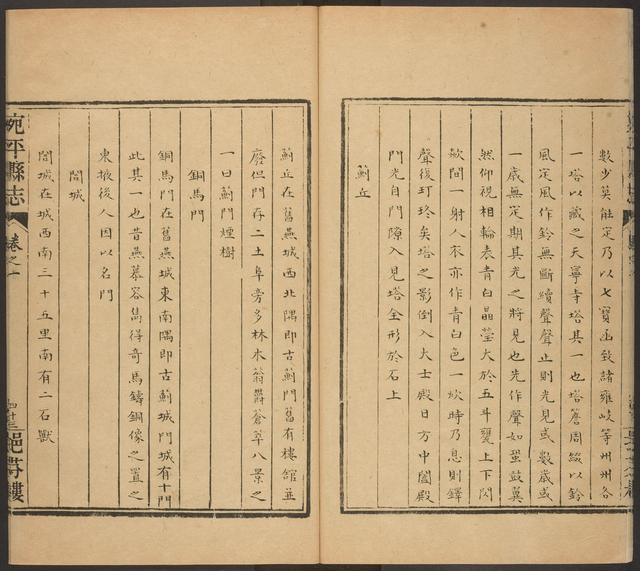 數少莫能定乃以七寶函致諸雍岐等州州各
一塔以藏之天寧寺塔其一也塔簷周綴以鈴
風定風作鈴無斷續聲聲止則光見或數歲或
一歲無定期其光之將見也先作聲如蚕鼓莫
然仰視相輪表青白晶瑩大於五斗甕上下閃
歘間一射人衣亦作青白色一炊時乃息則鐸
聲後玎玲矣塔之影倒入大士殿日方中闔殿
門光自門隙入見塔全形於石上
薊丘
薊丘在舊燕城西北隅即古薊門舊有樓館並
廢但門存二土阜旁多林木蓊鬱蒼翠八景之
一曰薊門煙樹
銅馬門
銅馬門在舊燕城東南隅即古薊城門城有十門
此其一也昔燕慕容雋得奇馬鑄銅像之置之
東掖後人因以名門
閻城
閻城在城西南三十五里南有二石獸
宛平縣志
卷之